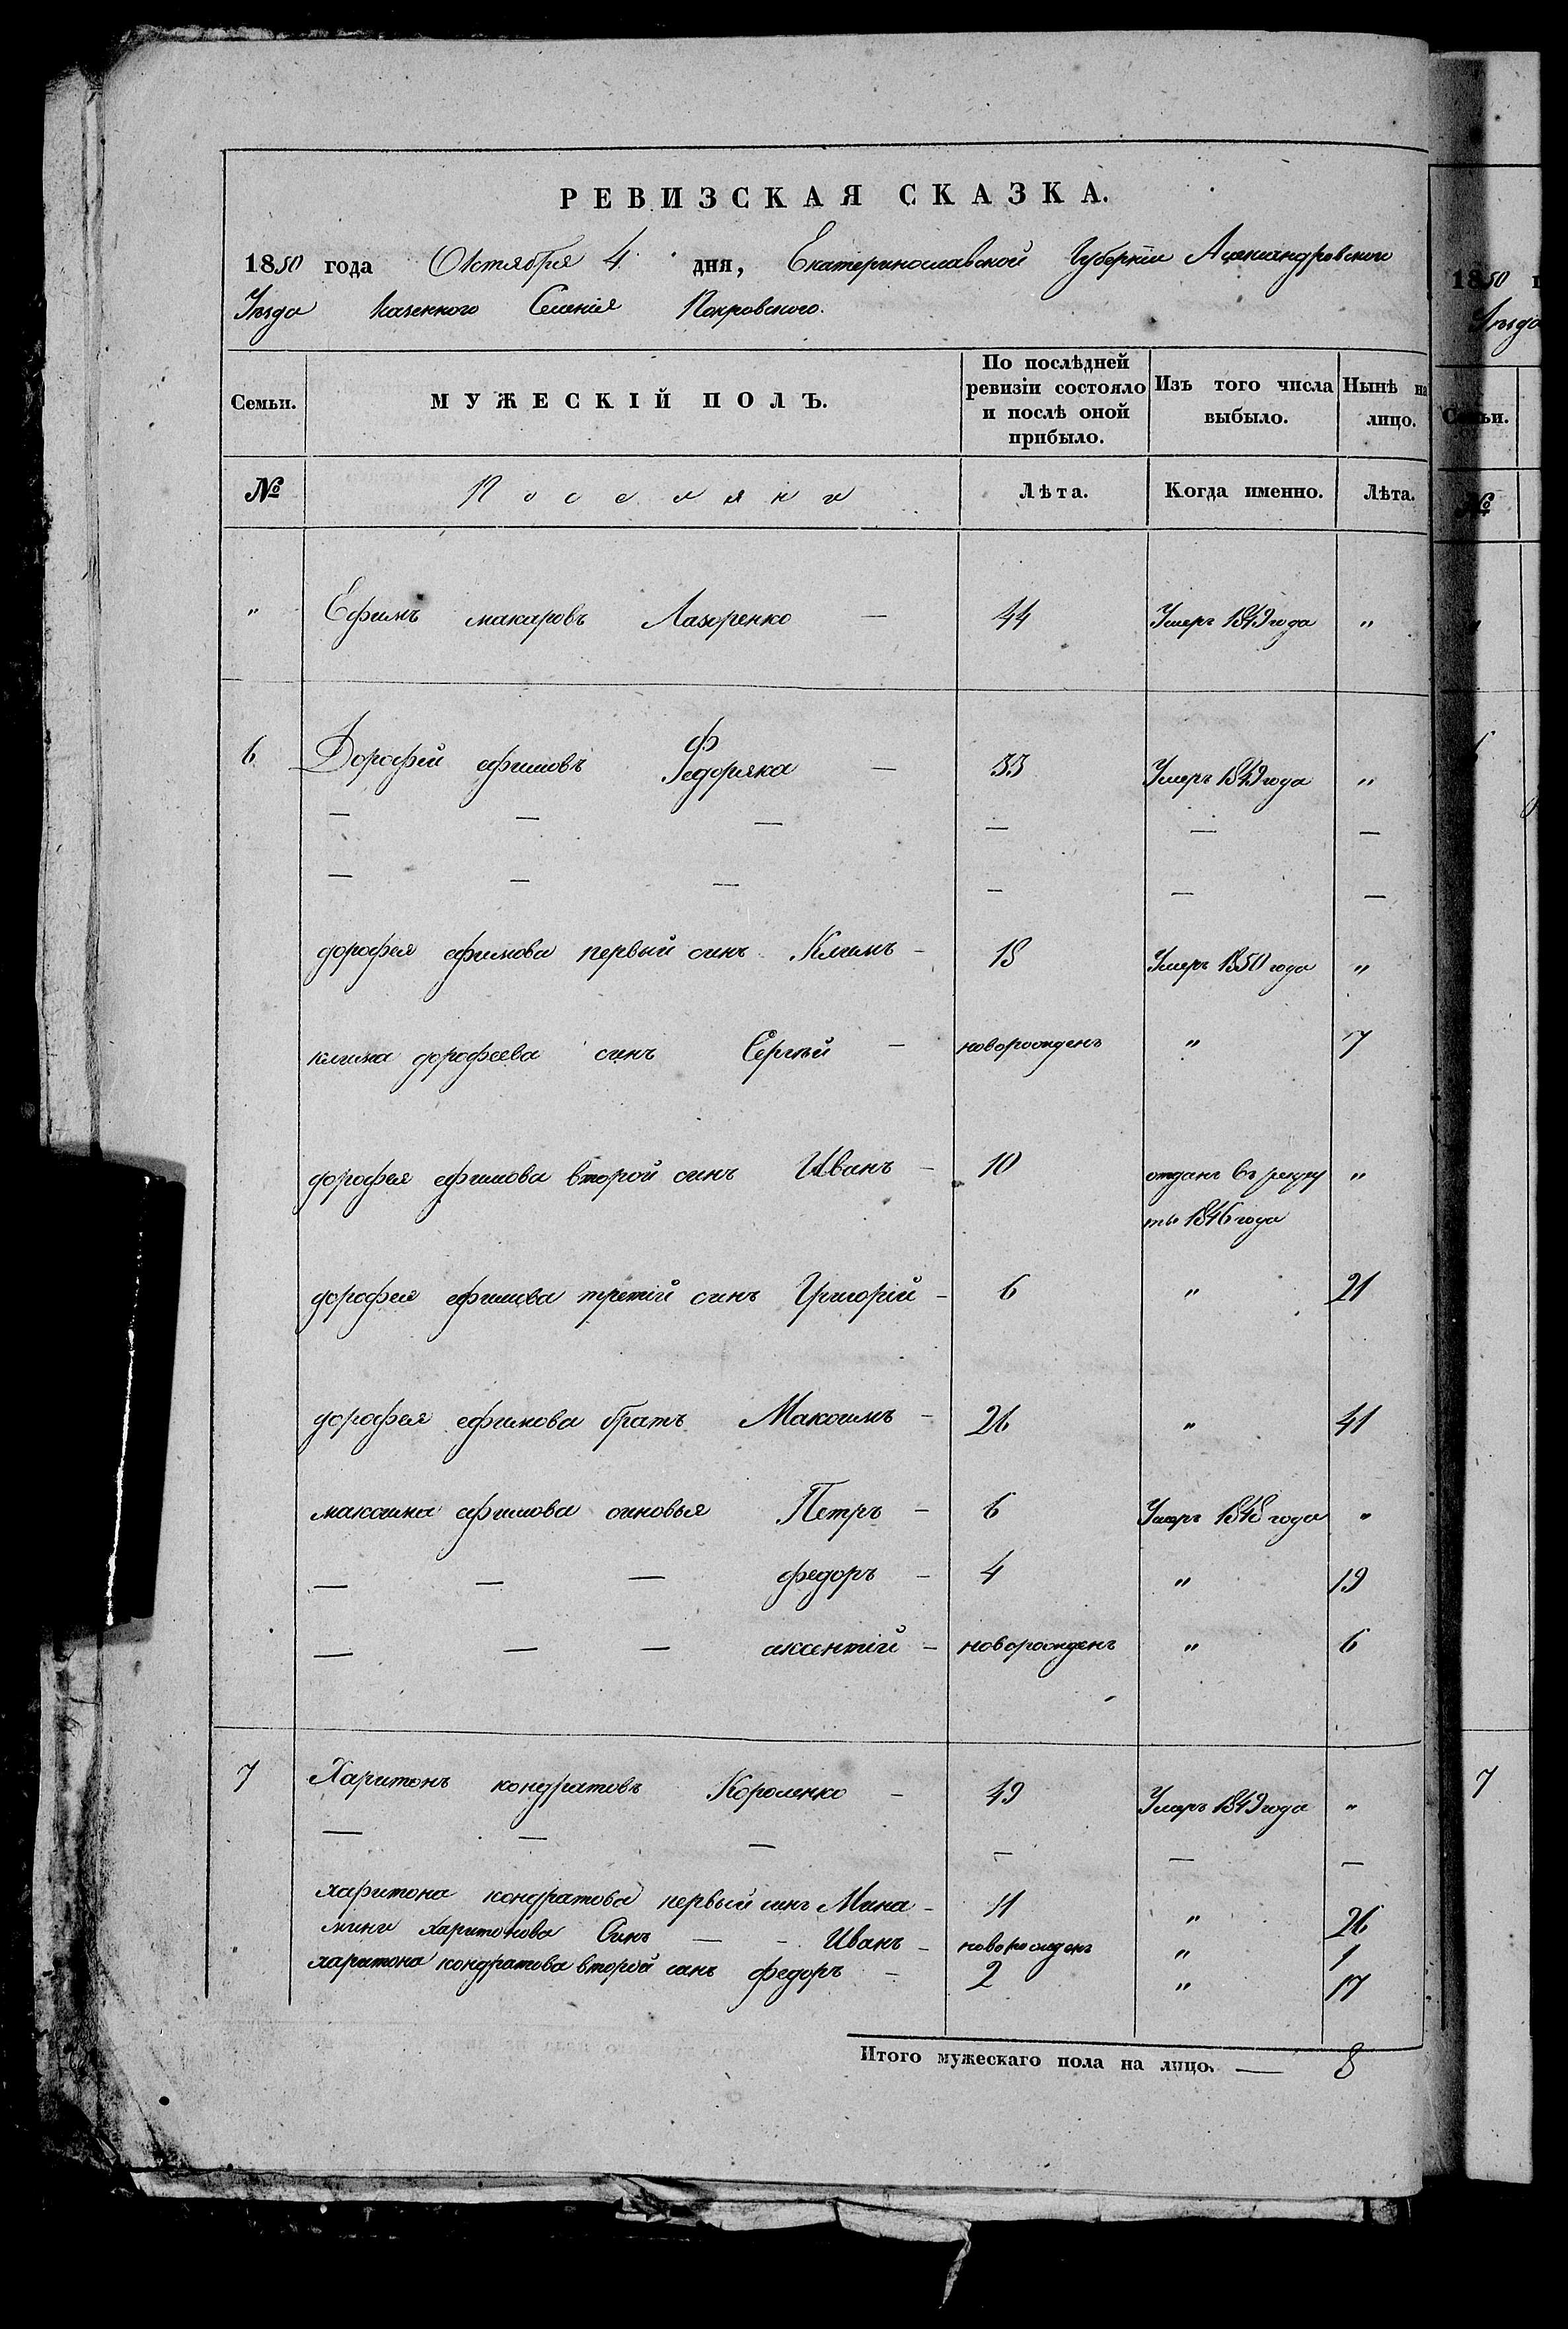 РЕВИЗСКАЯ СКАЗКА.
1850 года Октября 4 дня, Екатеринославской Губерніи Александровского
Уезда Казенного Селенія Покровского.
Семьи. МУЖЕСКІЙ ПОЛЪ. По послѣдней ревизіи состояло и послѣ оной прибыло. Изъ того числа выбыло. Нынѣ на лицо.
№ Поселяни Лѣта. Когда именно. Лѣта.
" Ефимъ макаровъ Лазоренко — 44 Умеръ 1849 года "
6 Дорофей ефимовъ Федоряка — 33 Умеръ 1849 года "
— — — — — —
— — — — — —
дорофея ефимова первый синъ Климъ — 18 Умеръ 1850 года "
клима дорофеева синъ Сергѣй — новорожденъ " 7
дорофея ефимова второй синъ Иванъ — 10 отданъ въ рекру "
ты 1846 года
дорофея ефимова третій синъ Григорій — 6 " 21
дорофея ефимова братъ Максимъ — 26 " 41
максима ефимова синовья Петръ — 6 Умеръ 1848 года "
— — — федоръ — 4 " 19
— — — аксентій — новорожденъ " 6
7 Харитонъ кондратовъ Короленко — 49 Умеръ 1849 года "
— — — — — —
харитона кондратова первый синъ Мина — 11 " 26
мини харитонова Синъ — - Иванъ — новорожденъ " 1
харитона кондратова второй синъ федоръ — 2 " 17
Итого мужескаго пола на лицо. — 8
1850
Уезда
Семьи.
№
"
6
7